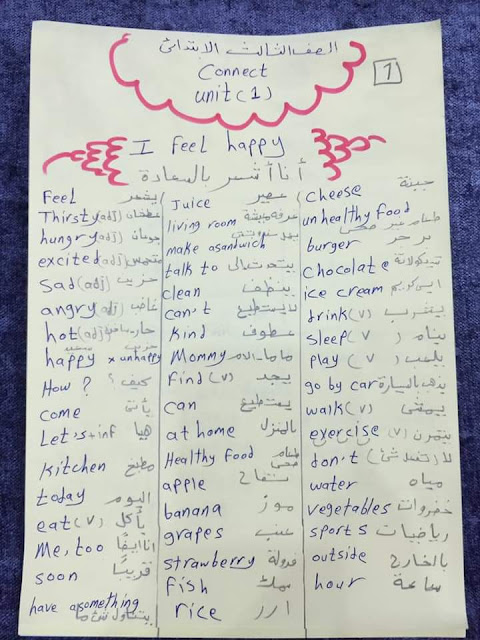 الصف الثالث الابتدائى
Connect
unit(1)
1
I feel happy
أنا أشعر بالسعادة
Feel يشعر
Thirsty(adj) عطشان
hungry(adj) جوعان
excited(adj) متحمس
Sad(adj) حزين
angry(adj) غاضب
hot(adj) حار
happy x unhappy
How? كيف؟
come يأتى
Let's+inf هيا
Kitchen مطبخ
today اليوم
eat(v) يأكل
Me, too أنا أيضًا
soon قريبًا
have a something
Juice عصير
living room غرفة معيشة
make asandwich
talk to يتحدث إلى
clean ينظف
can't لا يستطيع
Kind عطوف
Mommy ماما - الأم
Find(v) يجد
can يستطيع
at home بالمنزل
Healthy food طعام صحى
apple تفاح
banana موز
grapes عنب
strawberry فرولة
fish سمك
rice أرز
cheese جبنة
unhealthy food طعام غير صحى
burger برجر
chocolate شيكولاتة
ice cream ايس كريم
drink(v) يشرب
sleep(v) ينام
play (v) يلعب
go by car يذهب بالسيارة
walk(v) يمشى
exercise (v) يتمرن
don't
water مياه
vegetables خضروات
sports رياضيات
outside بالخارج
hour ساعة